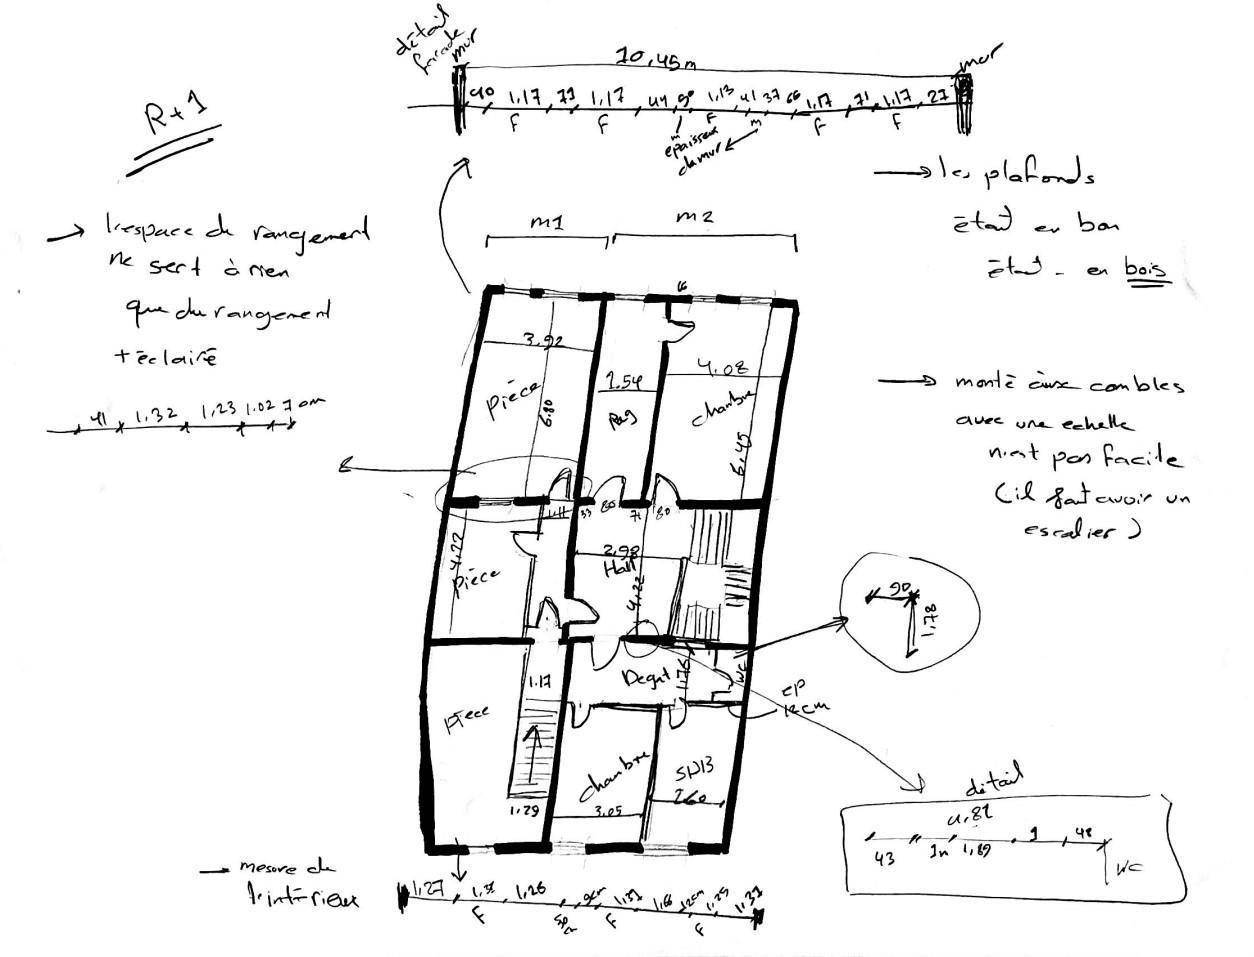 détail
façade
mur
10,45m
mur
90 1,17 71 1,17 44 50 1,13 41 37 66 1,17 71 1,17 27
F F F F F
m
m
epaisseur
du mur
R+1
→ les plafonds
était en bon
état - en bois
→ l'espace de rangement
ne sert à rien
que du rangement
+ éclairé
m1
m2
66
41 1,32 1,23 1.02 7 cm
3.92
1.54
4.08
pièce
6.80
Rag
chambre
6,45
→ monté aux combles
avec une echelle
n'est pas facile
(il faut avoir un
escalier)
1,11 33 80 71 80
4,22
pièce
2.98
Hall
4,22
90
1,78
1.17
Degat
1,76
WC
EP
12cm
pièce
chambre
3,05
SDB
2,60
1.29
détail
4,82
43 1m 1,89 1 48
WC
→ mesure de
l'intérieux
1,27 1,26 1,31 1,66 12cm 1,25 1,31
F F F